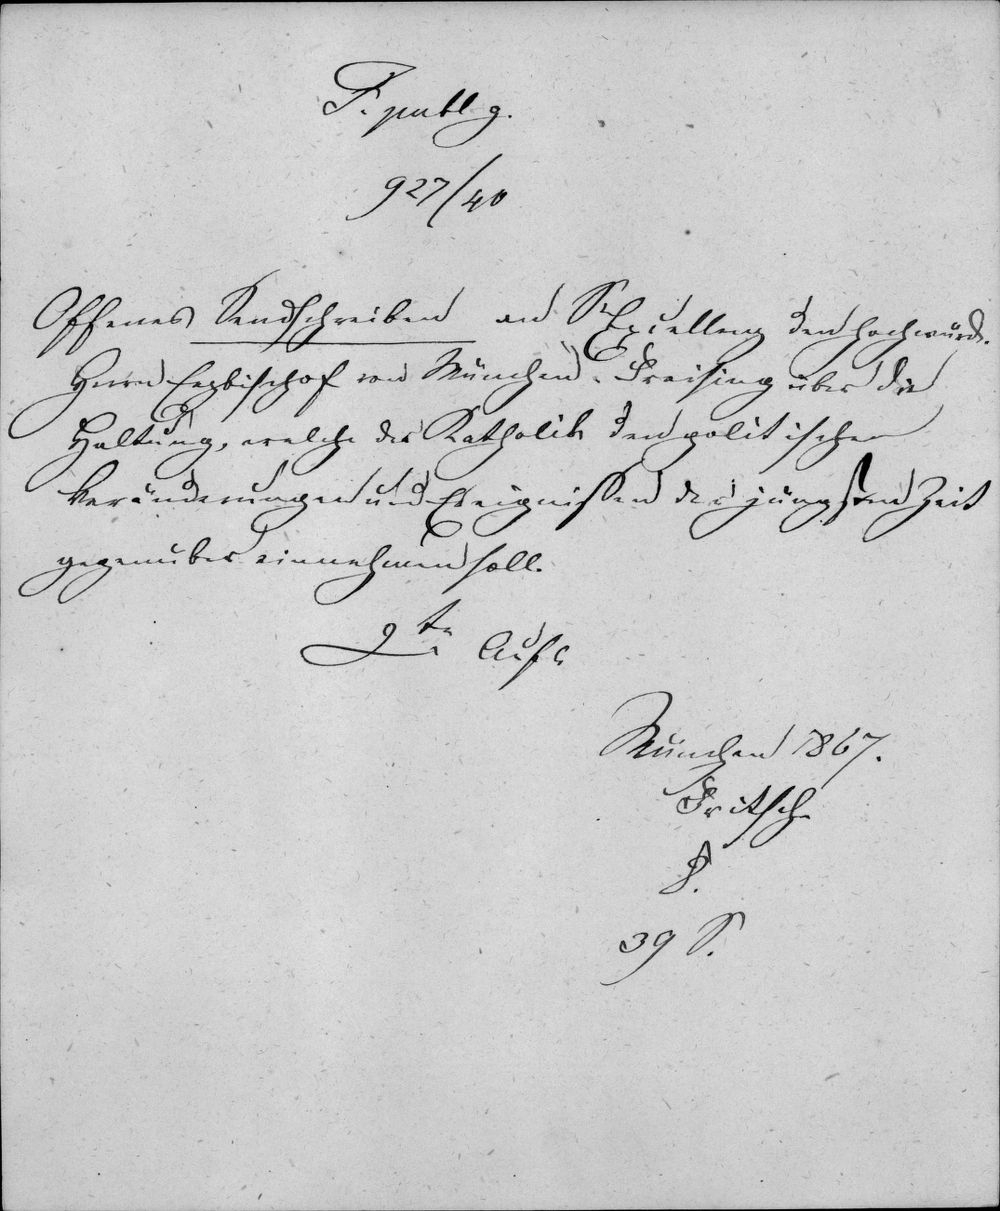 J. publ. g.
927/40
Offenes Sendschreiben an Se Excellenz den hochwürd.
Herrn Erzbischof von München-Freising über die
Haltung, welche der Katholik den politischen
Veränderungen und Ereignissen der jüngsten Zeit
gegenüber einnehmen soll.
2te Aufl
München 1867.
Fritsch.
8.
39 S.